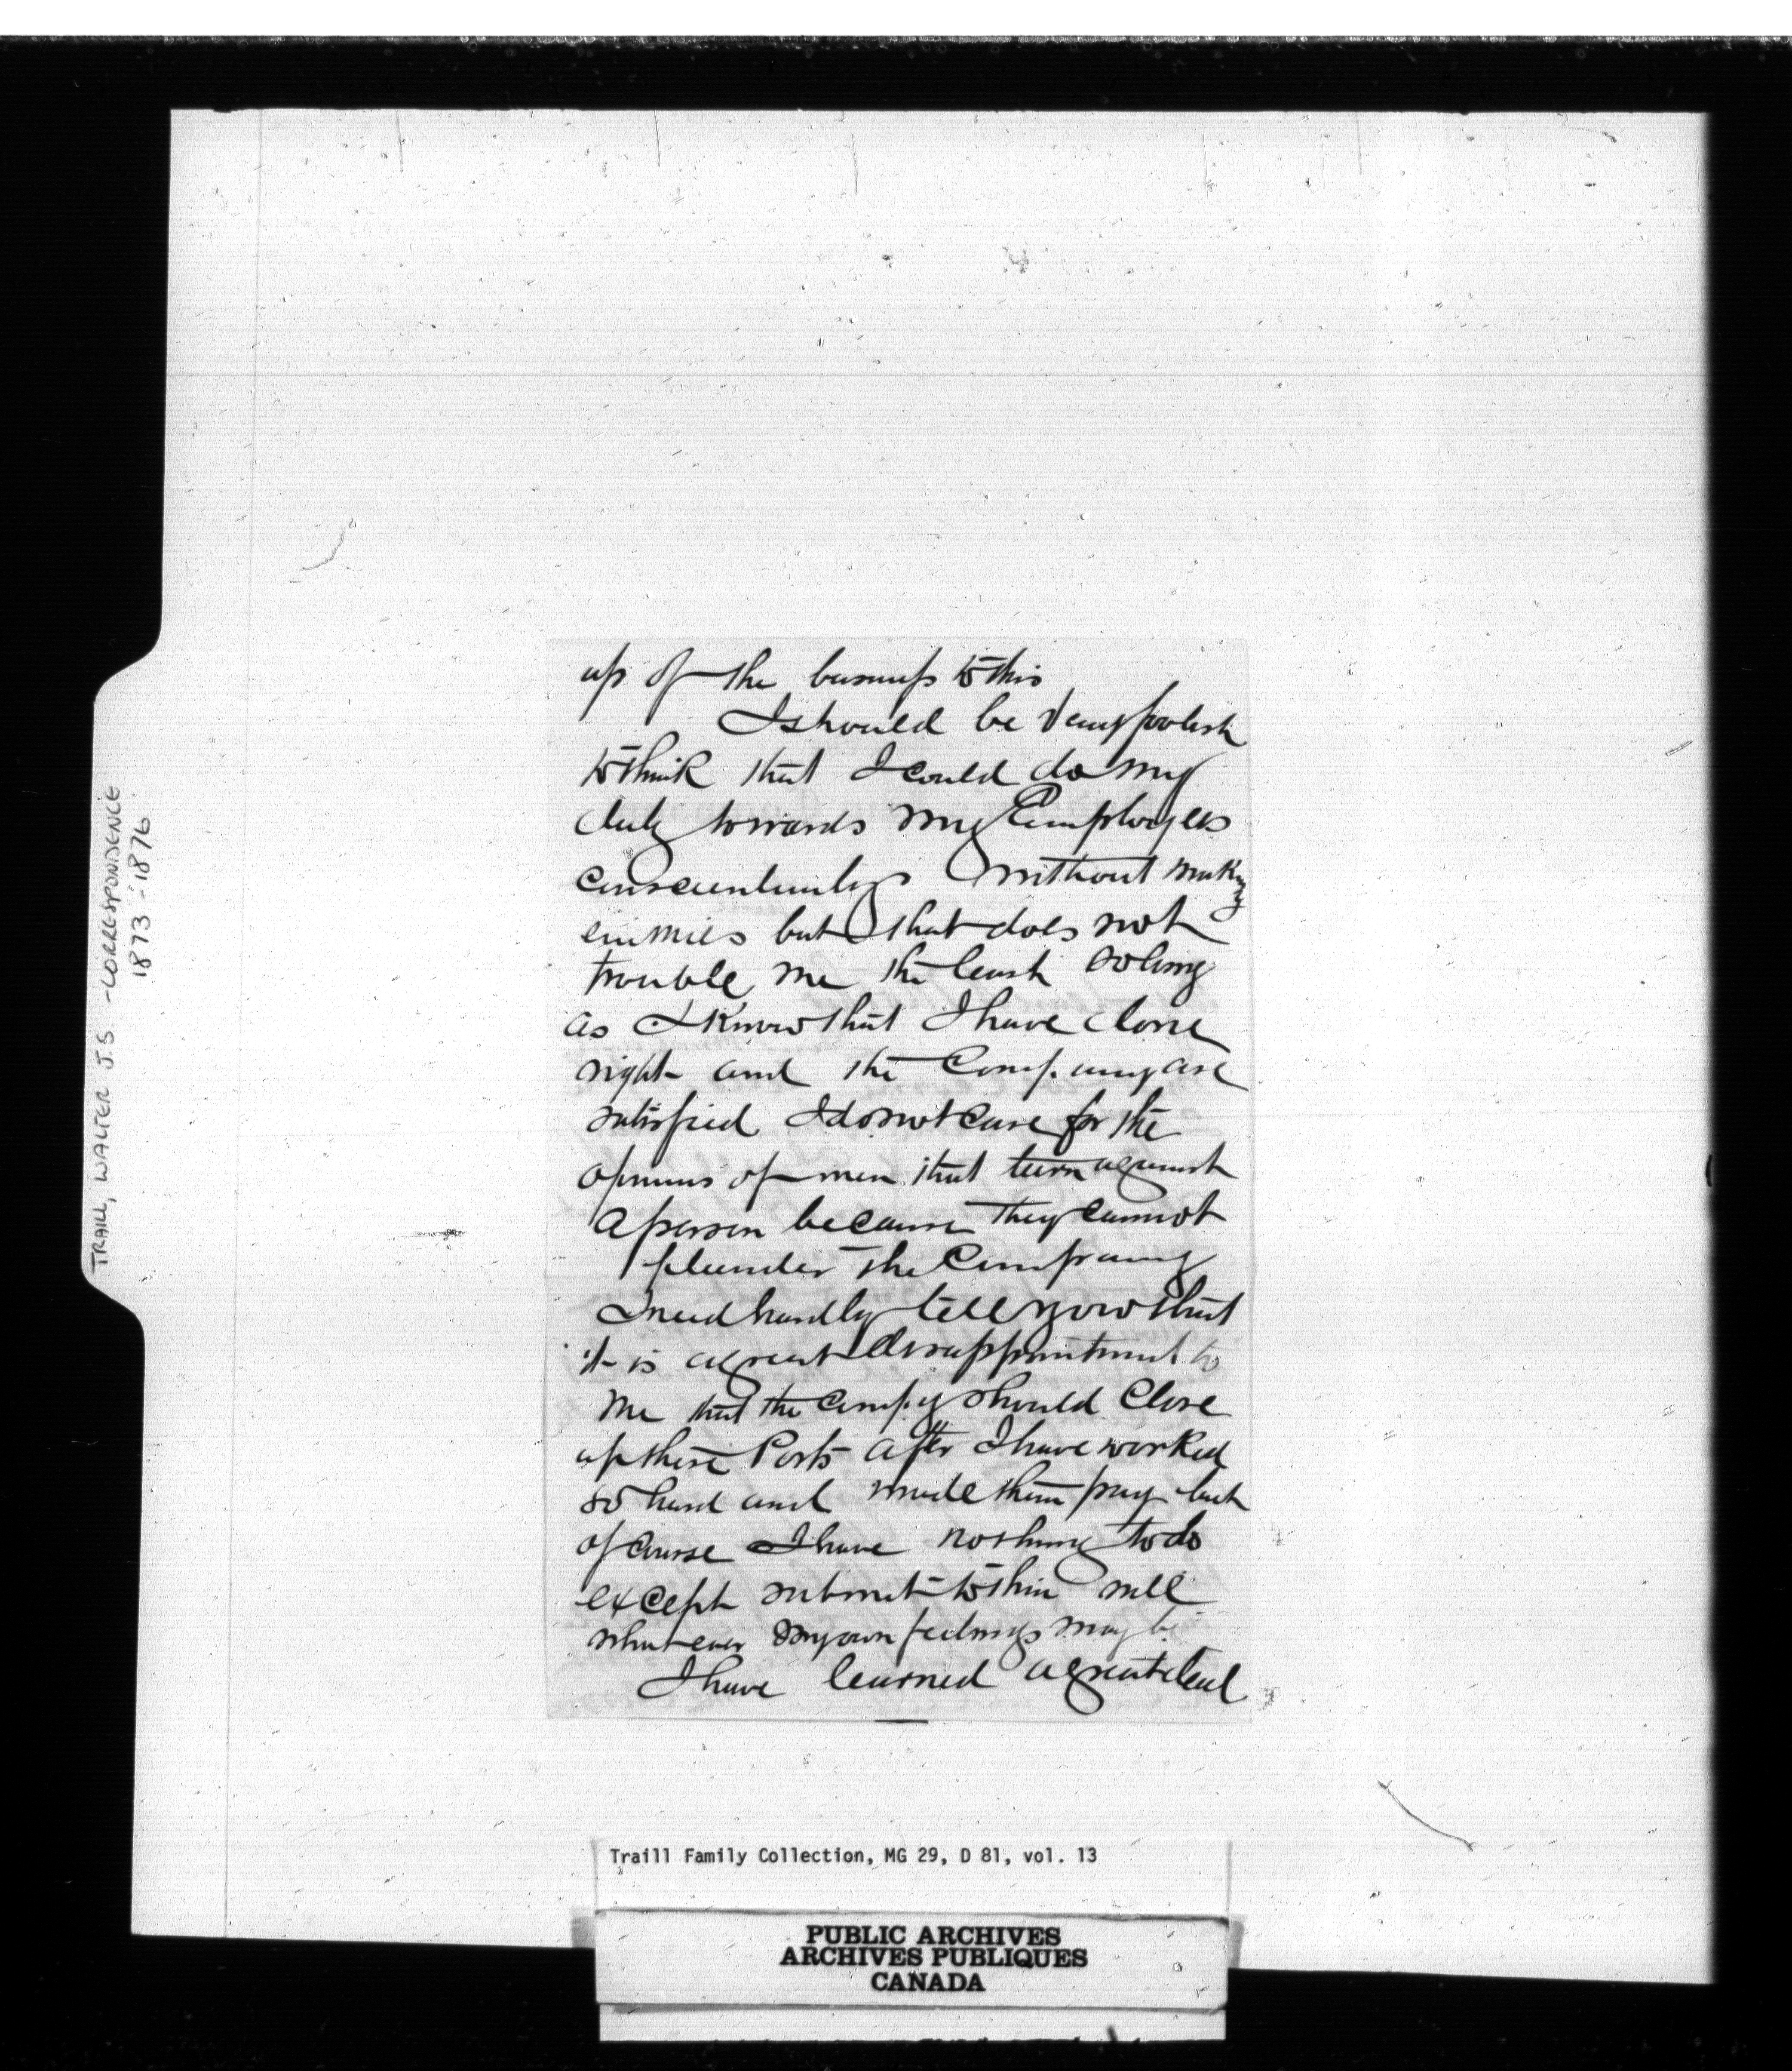 up of the business to this
I should be very foolish
to think that I could do my
duty towards my Employers
conscientiously without making
enimies but that does not
trouble me the least so long
as I know that I have done
right and the Company are
satisfied I do not care for the
opinions of men that turn against
a person because they cannot
plunder the Company
I need hardly tell you that
it is a great disappointment to
me that the Compy should close
up these Posts after I have worked
so hard and made them pay but
of course I have nothing to do
except submit to their will
what ever my own feelings may be
I have learned a great deal
TRAILL, WALTER J.S - CORRESPONDENCE
1873 - 1876
Traill Family Collection, MG 29, D 81, vol. 13
PUBLIC ARCHIVES
ARCHIVES PUBLIQUES
CANADA